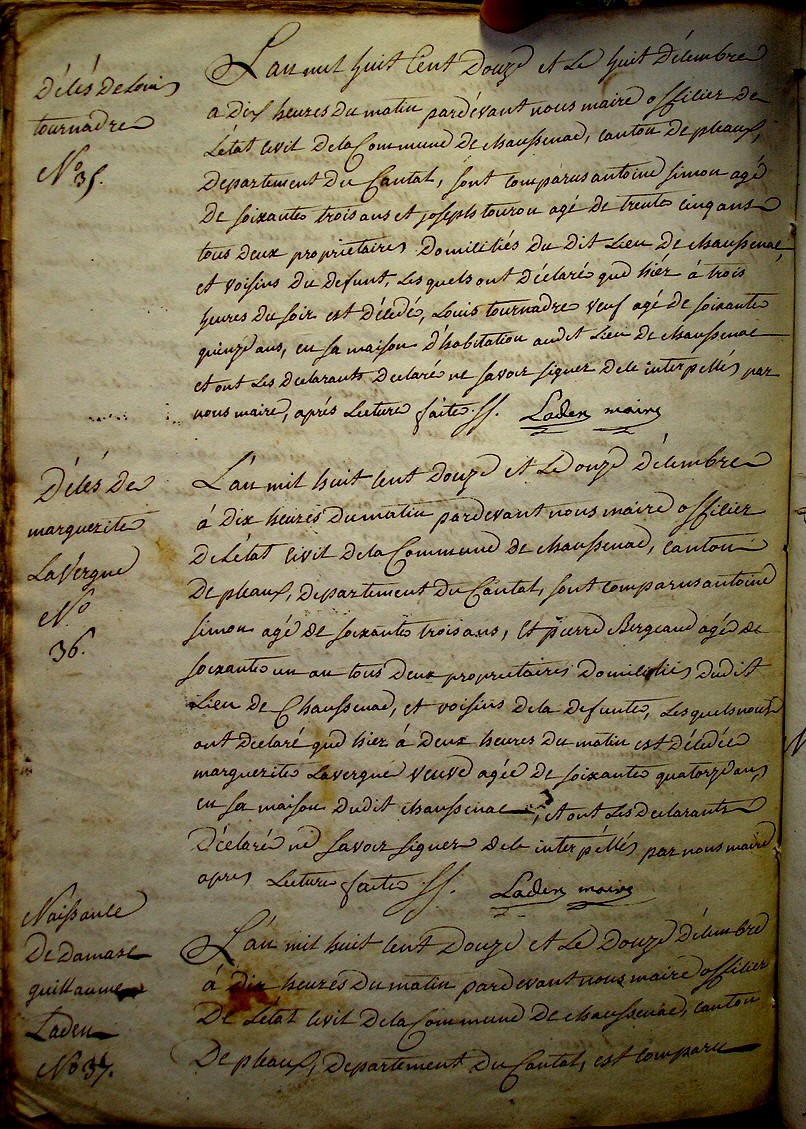 Décés de Louis
tournadre
No 35.
L'an mil huit Cent Douze et Le huit Décembre
a Dix heures Du matin pardévant nous maire officier De
L'état Civil De la Commune De chaussenac, canton De pleaux,
Departement Du Cantal, sont comparus antoine simon agé
De soixante trois ans et joseph tourou agé De trente cinq ans
tous deux propriétaires Domiciliés Du Dit Lieu De chaussenac,
et voisins Du Defunt, Les quels ont Déclaré que hiér à trois
heures Du soir est Décedé, Louis tournadre veuf agé De soixante
quinze ans, en sa maison D'habitation au dit Lieu De chaussenac
et ont Les Declarants Declaré ne savoir signer De ce interpellés par
nous maire, aprés Lecture faite. Laden maire
Décés De
marguerite
LaVergne
No
36.
L'an mil huit cent Douze et Le Douze Décembre
à Dix heures Du matin pardevant nous maire officier
De L'état Civil De la Commune De chaussenac, canton
De pleaux, Departement Du Cantal, sont comparus antoine
simon agé De soixante trois ans, Et pierre Bergeaud agé De
soixante un an tous Deux proprietaires Domiciliés Du dit
Lieu De Chaussenac, et voisins De la Defunte, Les quels nous
ont Declaré que hier à Deux heures Du matin est Décedée
marguerite Lavergne veuve agée De soixante quatorze ans,
en sa maison Du dit chaussenac, et ont Les Declarants
Déclaré ne savoir signer De ce interpéllés par nous maire
apres Lecture faite. Laden maire
Naissance
De Damase
guillaume
Laden
No 37.
L'an mil huit cent Douze et Le Douze Décembre
à Dix heures Du matin pardevant nous maire officier
De L'état Civil De la Commune De chaussenac, canton
De pleaux, Departement Du Cantal, est comparu